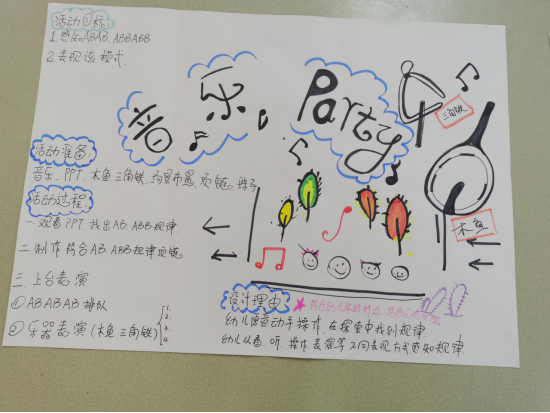 活动目标
1.感知ABAB ABBABB
2.表现该模式.
音乐 Party
三角铁
木鱼
活动准备:
音乐、PPT、木鱼、三角铁、场景布置、项链、珠子
活动过程:
一.观看PPT 找出AB、ABB规律
二.制作符合AB ABB规律项链
三.上台表演
①ABABAB排队
②乐器表演(木鱼三角铁)
1.
2.
3.
4.
设计理由
符合幼儿年龄特点
幼儿 动手操作,在探索中找到规律
幼儿从看、听、操作表演等不同表现方式感知规律